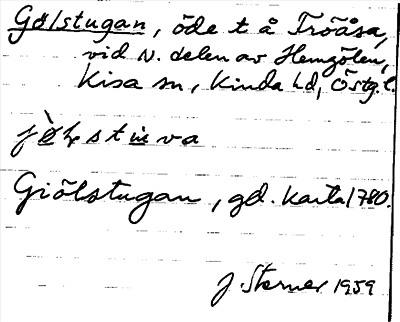 Gölstugan, öde t å Tröåsa,
vid N. delen av Hemgölen,
Kisa sn, Kinda hd, Östg.l.
Giölstugan, gd. karta 1780.
J. Sterner 1959